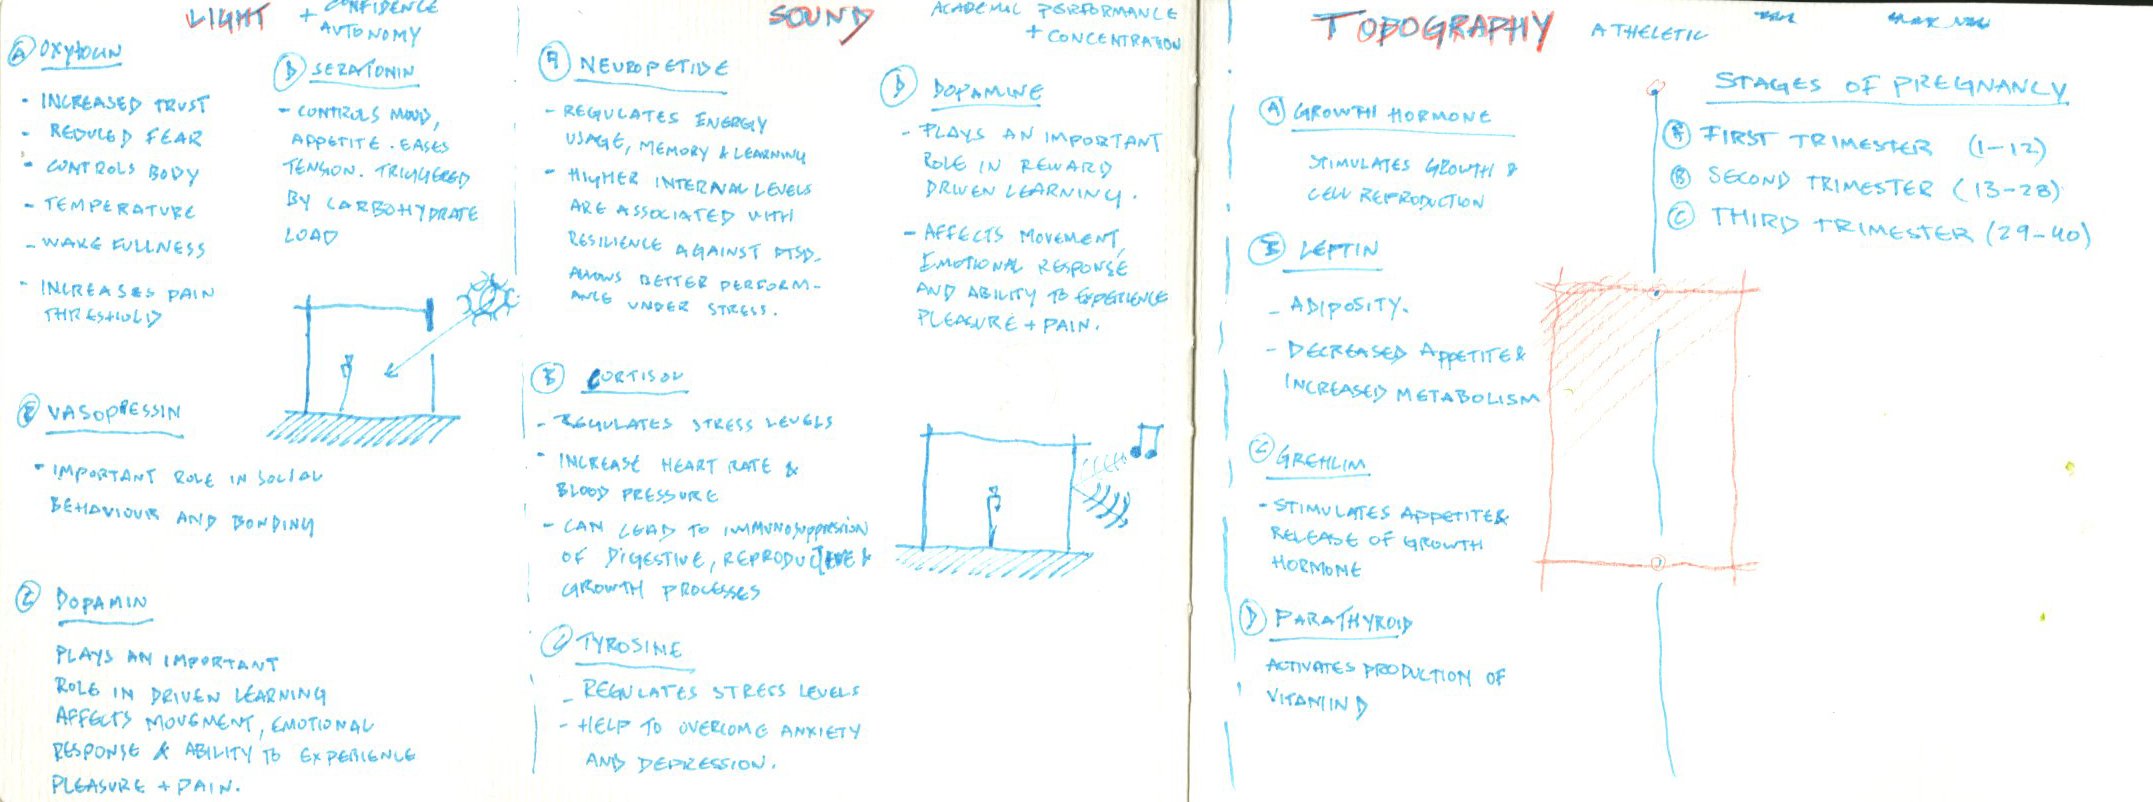 LIGHT
+ CONFIDENCE
AUTONOMY
A OXYTOCIN
- INCREASED TRUST
- REDUCED FEAR
- CONTROLS BODY
- TEMPERATURE
- WAKEFULLNESS
- INCREASES PAIN
THRESHOLD
B VASOPRESSIN
- IMPORTANT ROLE IN SOCIAL
BEHAVIOUR AND BONDING
C DOPAMIN
PLAYS AN IMPORTANT
ROLE IN DRIVEN LEARNING
AFFECTS MOVEMENT, EMOTIONAL
RESPONSE & ABILITY TO EXPERIENCE
PLEASURE + PAIN.
D SERATONIN
- CONTROLS MOOD,
APPETITE. EASES
TENSION. TRIGGERED
BY CARBOHYDRATE
LOAD
SOUND
ACADEMIC PERFORMANCE
+ CONCENTRATION
A NEUROPETIDE
- REGULATES ENERGY
USAGE, MEMORY & LEARNING
- HIGHER INTERNAL LEVELS
ARE ASSOCIATED WITH
RESILIENCE AGAINST PTSD.
ALLOWS BETTER PERFORM-
ANCE UNDER STRESS.
B CORTISOL
- REGULATES STRESS LEVELS
- INCREASE HEART RATE &
BLOOD PRESSURE
- CAN LEAD TO IMMUNOSUPPRESSION
OF DIGESTIVE, REPRODUCTIVE &
GROWTH PROCESSES
C TYROSINE
- REGULATES STRESS LEVELS
- HELP TO OVERCOME ANXIETY
AND DEPRESSION.
D DOPAMINE
- PLAYS AN IMPORTANT
ROLE IN REWARD
DRIVEN LEARNING.
- AFFECTS MOVEMENT,
EMOTIONAL RESPONSE
AND ABILITY TO EXPERIENCE
PLEASURE + PAIN.
TOPOGRAPHY
ATHELETIC
A GROWTH HORMONE
STIMULATES GROWTH &
CELL REPRODUCTION
B LEPTIN
- ADIPOSITY.
- DECREASED APPETITE &
INCREASED METABOLISM
C GREHLIM
- STIMULATES APPETITE &
RELEASE OF GROWTH
HORMONE
D PARATHYROID
ACTIVATES PRODUCTION OF
VITAMIN D
STAGES OF PREGNANCY
A FIRST TRIMESTER (1-12)
B SECOND TRIMESTER (13-28)
C THIRD TRIMESTER (29-40)